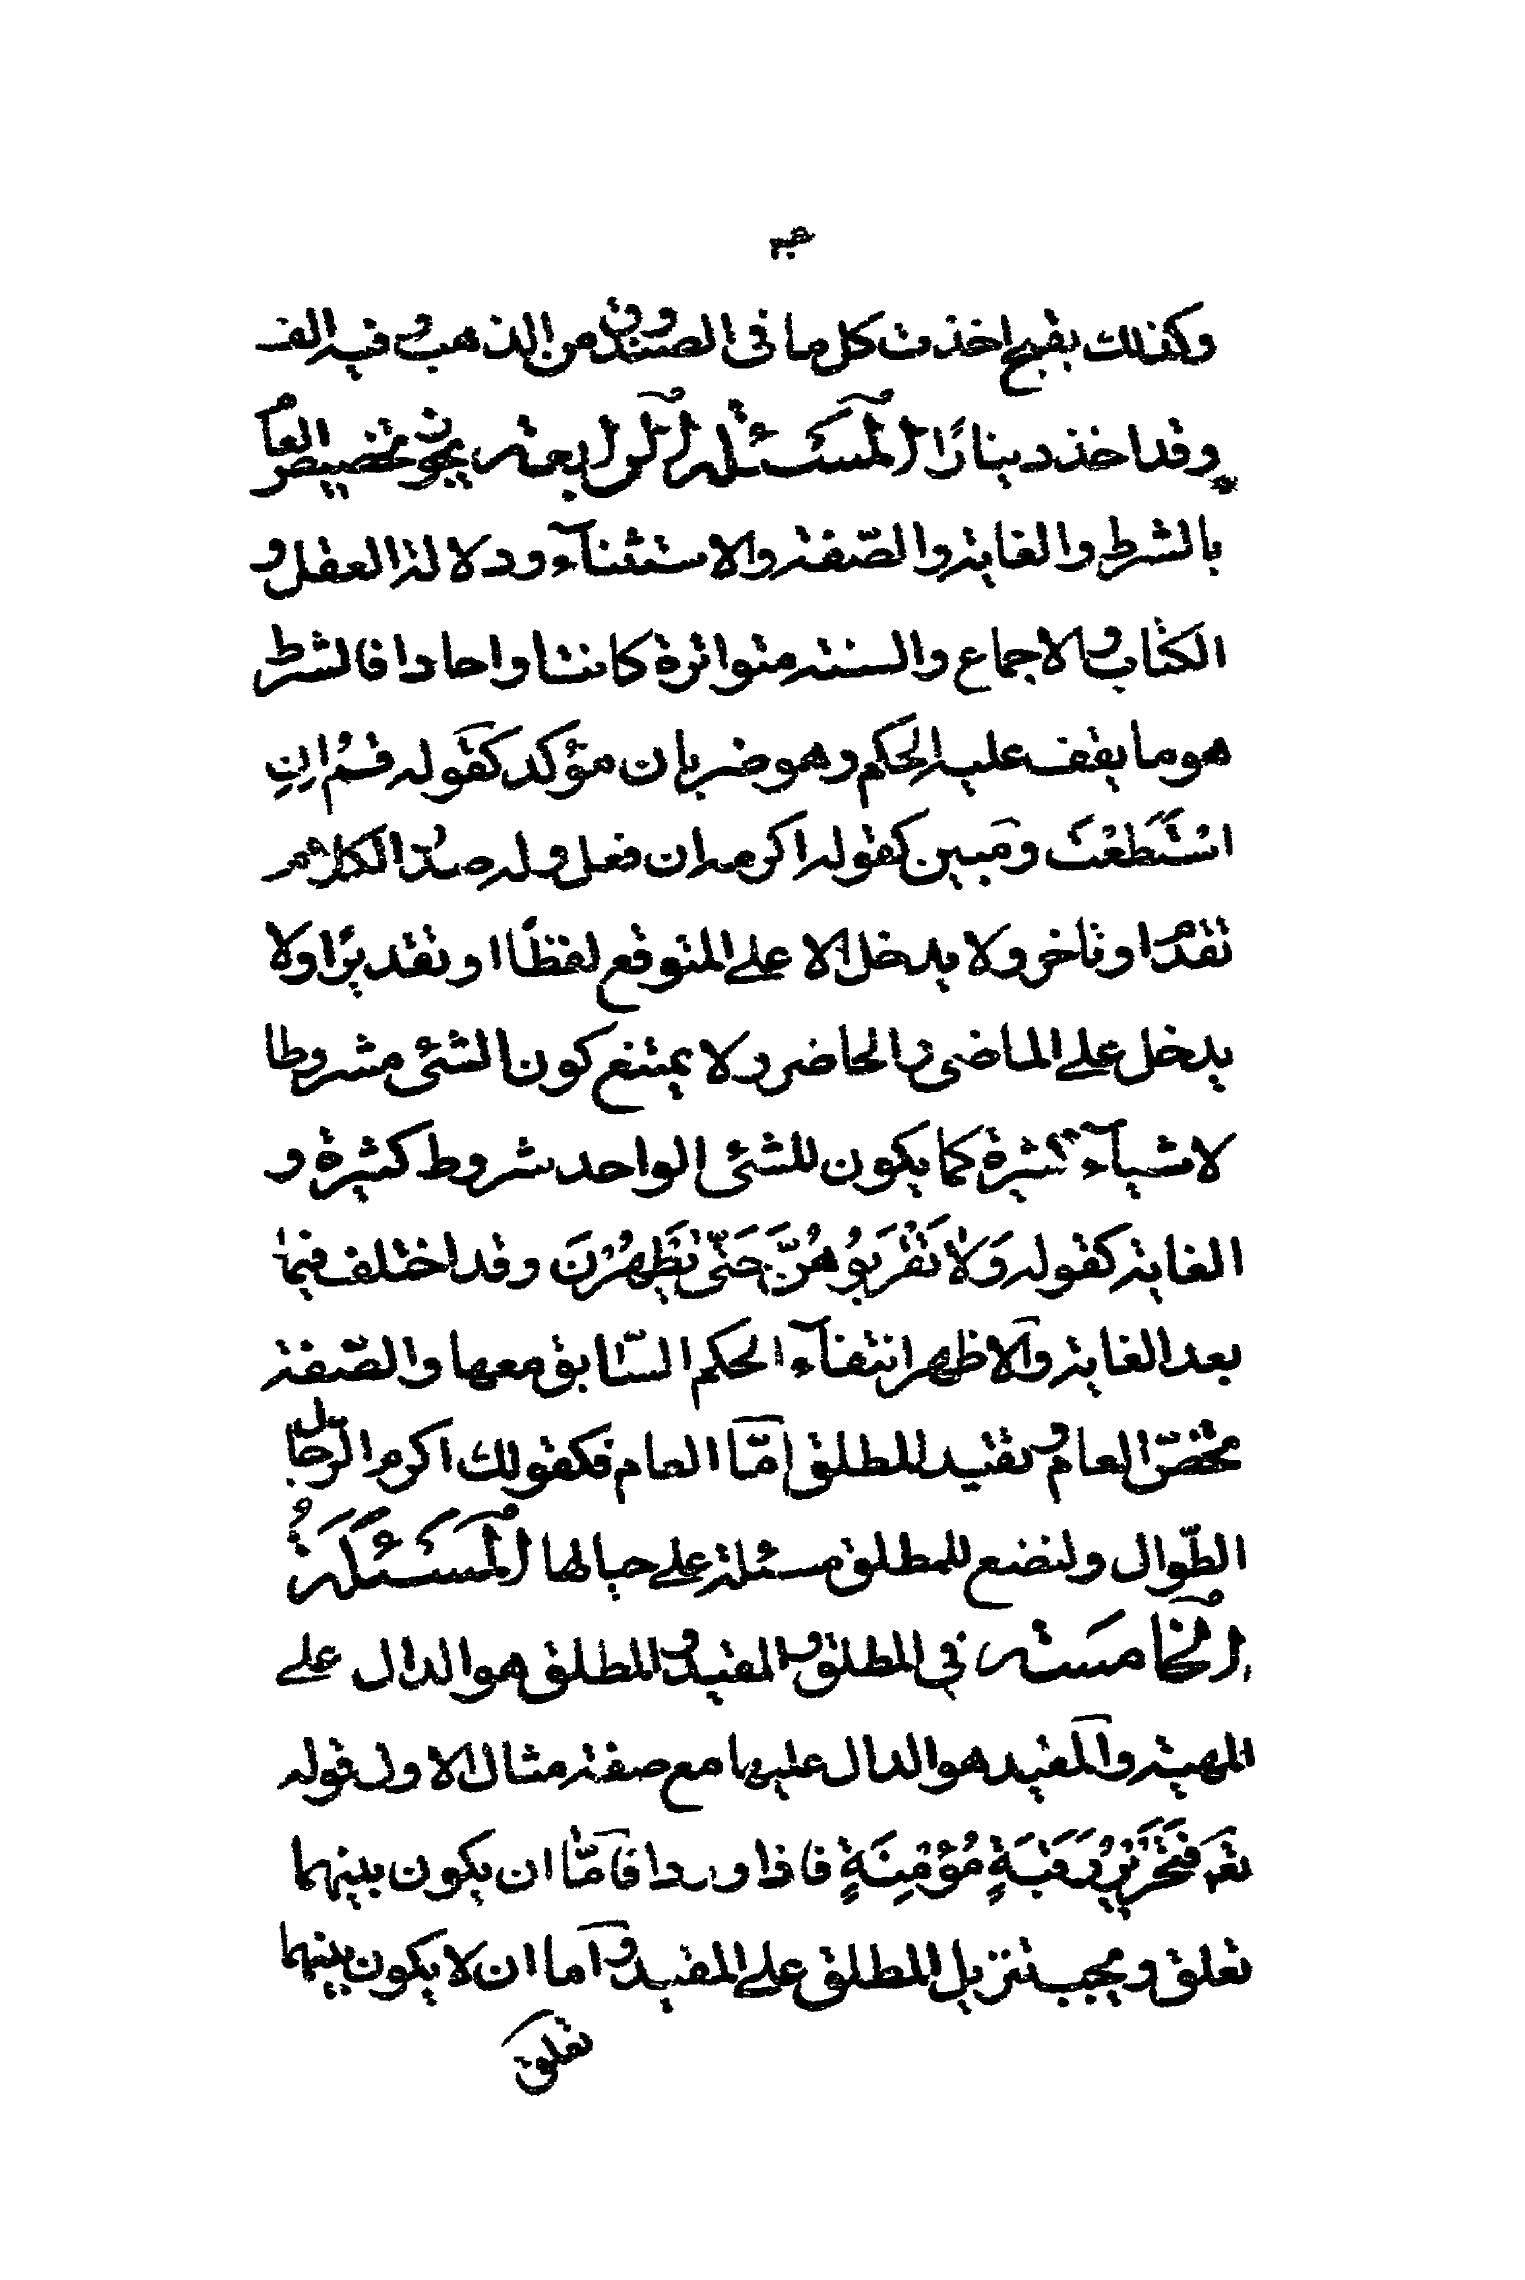 وكذلك يقبح اخذت كل ما فى الصندوق من الذهب وفيه الف
وقد اخذ دينارًا المسئلة الرابعة يجوز تخصيص العام
بالشرط والغاية والصّفة والاستثنآء ودلالة العقل و
الكتاب والاجماع والسنة متواترة كانت او احادا فالشرط
هو ما يقف عليه الحكم وهو ضربان مؤكد كقوله قُمْ اِنِ
اسْتَطَعْتَ ومبين كقوله اكرمه ان فعل وله صدر الكلام
تقدّمًا وتاخر ولا يدخل الا على المتوقع لفظًا او تقديرًا ولا
يدخل على الماضى والحاضر ولا يمتنع كون الشئ مشروطا
لاشيآء كثيرة كما يكون للشئ الواحد شروط كثيرة و
الغاية كقوله وَلَا تَقْرَبُوهُنَّ حَتّى يَطْهُرْنَ وقد اختلف فيما
بعد الغاية والاظهر انتفآء الحكم السّابق معها والصّفة
تخصّ العام وتقيد المطلق امّا العام فكقولك اكرم الرّجال
الطّوال ولنضع للمطلق مسئلة على حيالها المَسْئَلَةُ
الخامسة فى المطلق والمقيد والمطلق هو الدال على
المهية والمقيد هو الدال عليها مع صفة مثال الاول قوله
تعه فَتَحْرِيرُ رَقَبَةٍ مُؤْمِنَةٍ فاذا وردا فامّا ان يكون بينهما
تعلق ويجب تنزيل المطلق على المقيد واما ان لا يكون بينهما
تعلق